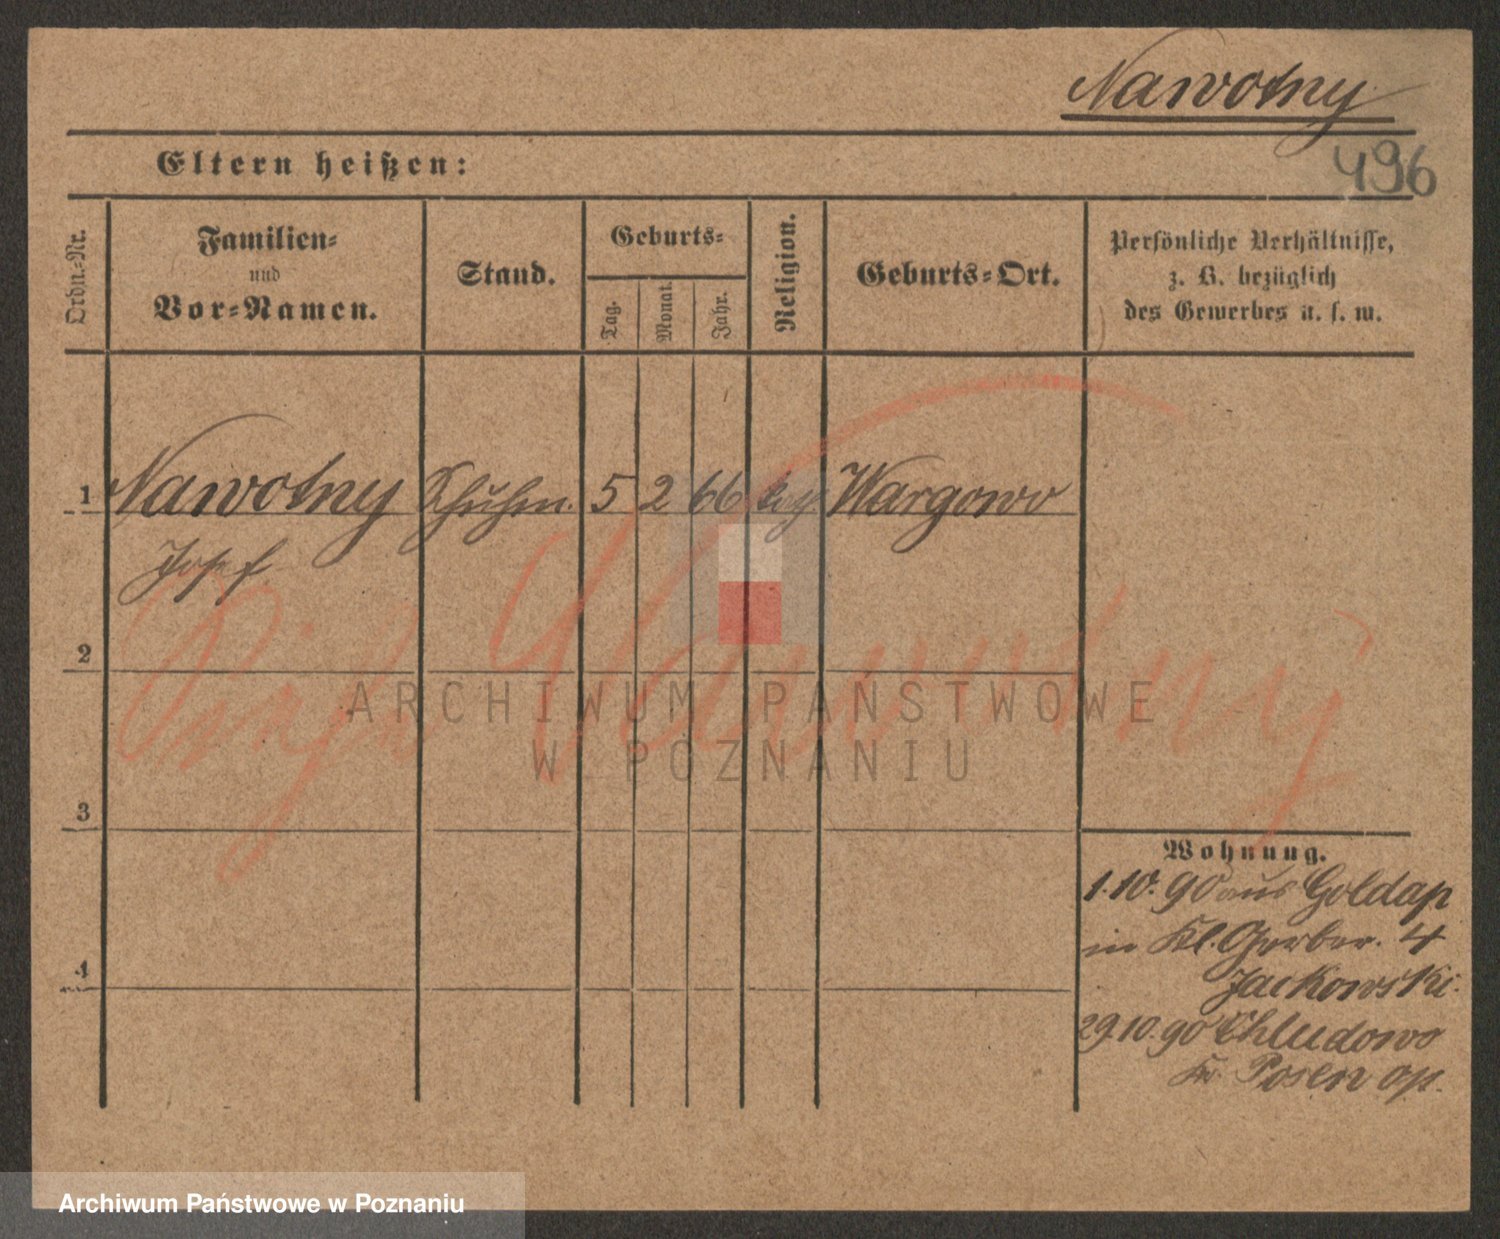 Nawotny
496
Eltern heißen:
Ordn.-Nr.
Familien-
und
Vor-Namen.
Stand.
Geburts-
Tag.
Monat.
Jahr.
Religion.
Geburts-Ort.
Persönliche Verhältnisse,
z. B. bezüglich
des Gewerbes u. s. w.
1 Nawotny Schuhm. 5 2 66 kath. Wargowo
Josef
Nawotny
2
3
4
ARCHIWUM PAŃSTWOWE
W POZNANIU
Wohnung.
1.10.90 aus Goldap
in Kl. Gerber. 4
Jackowski.
29.10.90 Chludowo
Kr. Posen op.
Archiwum Państwowe w Poznaniu